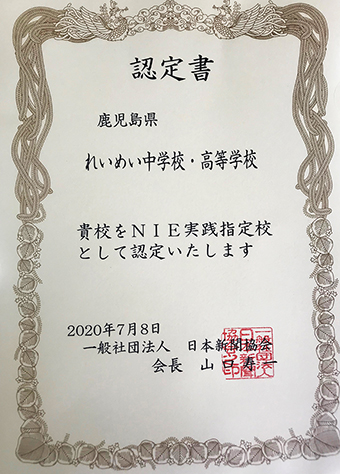 認定書
鹿児島県
れいめい中学校・高等学校
貴校をNIE実践指定校
として認定いたします
2020年7月8日
一般社団法人　日本新聞協会
会長　山口寿一